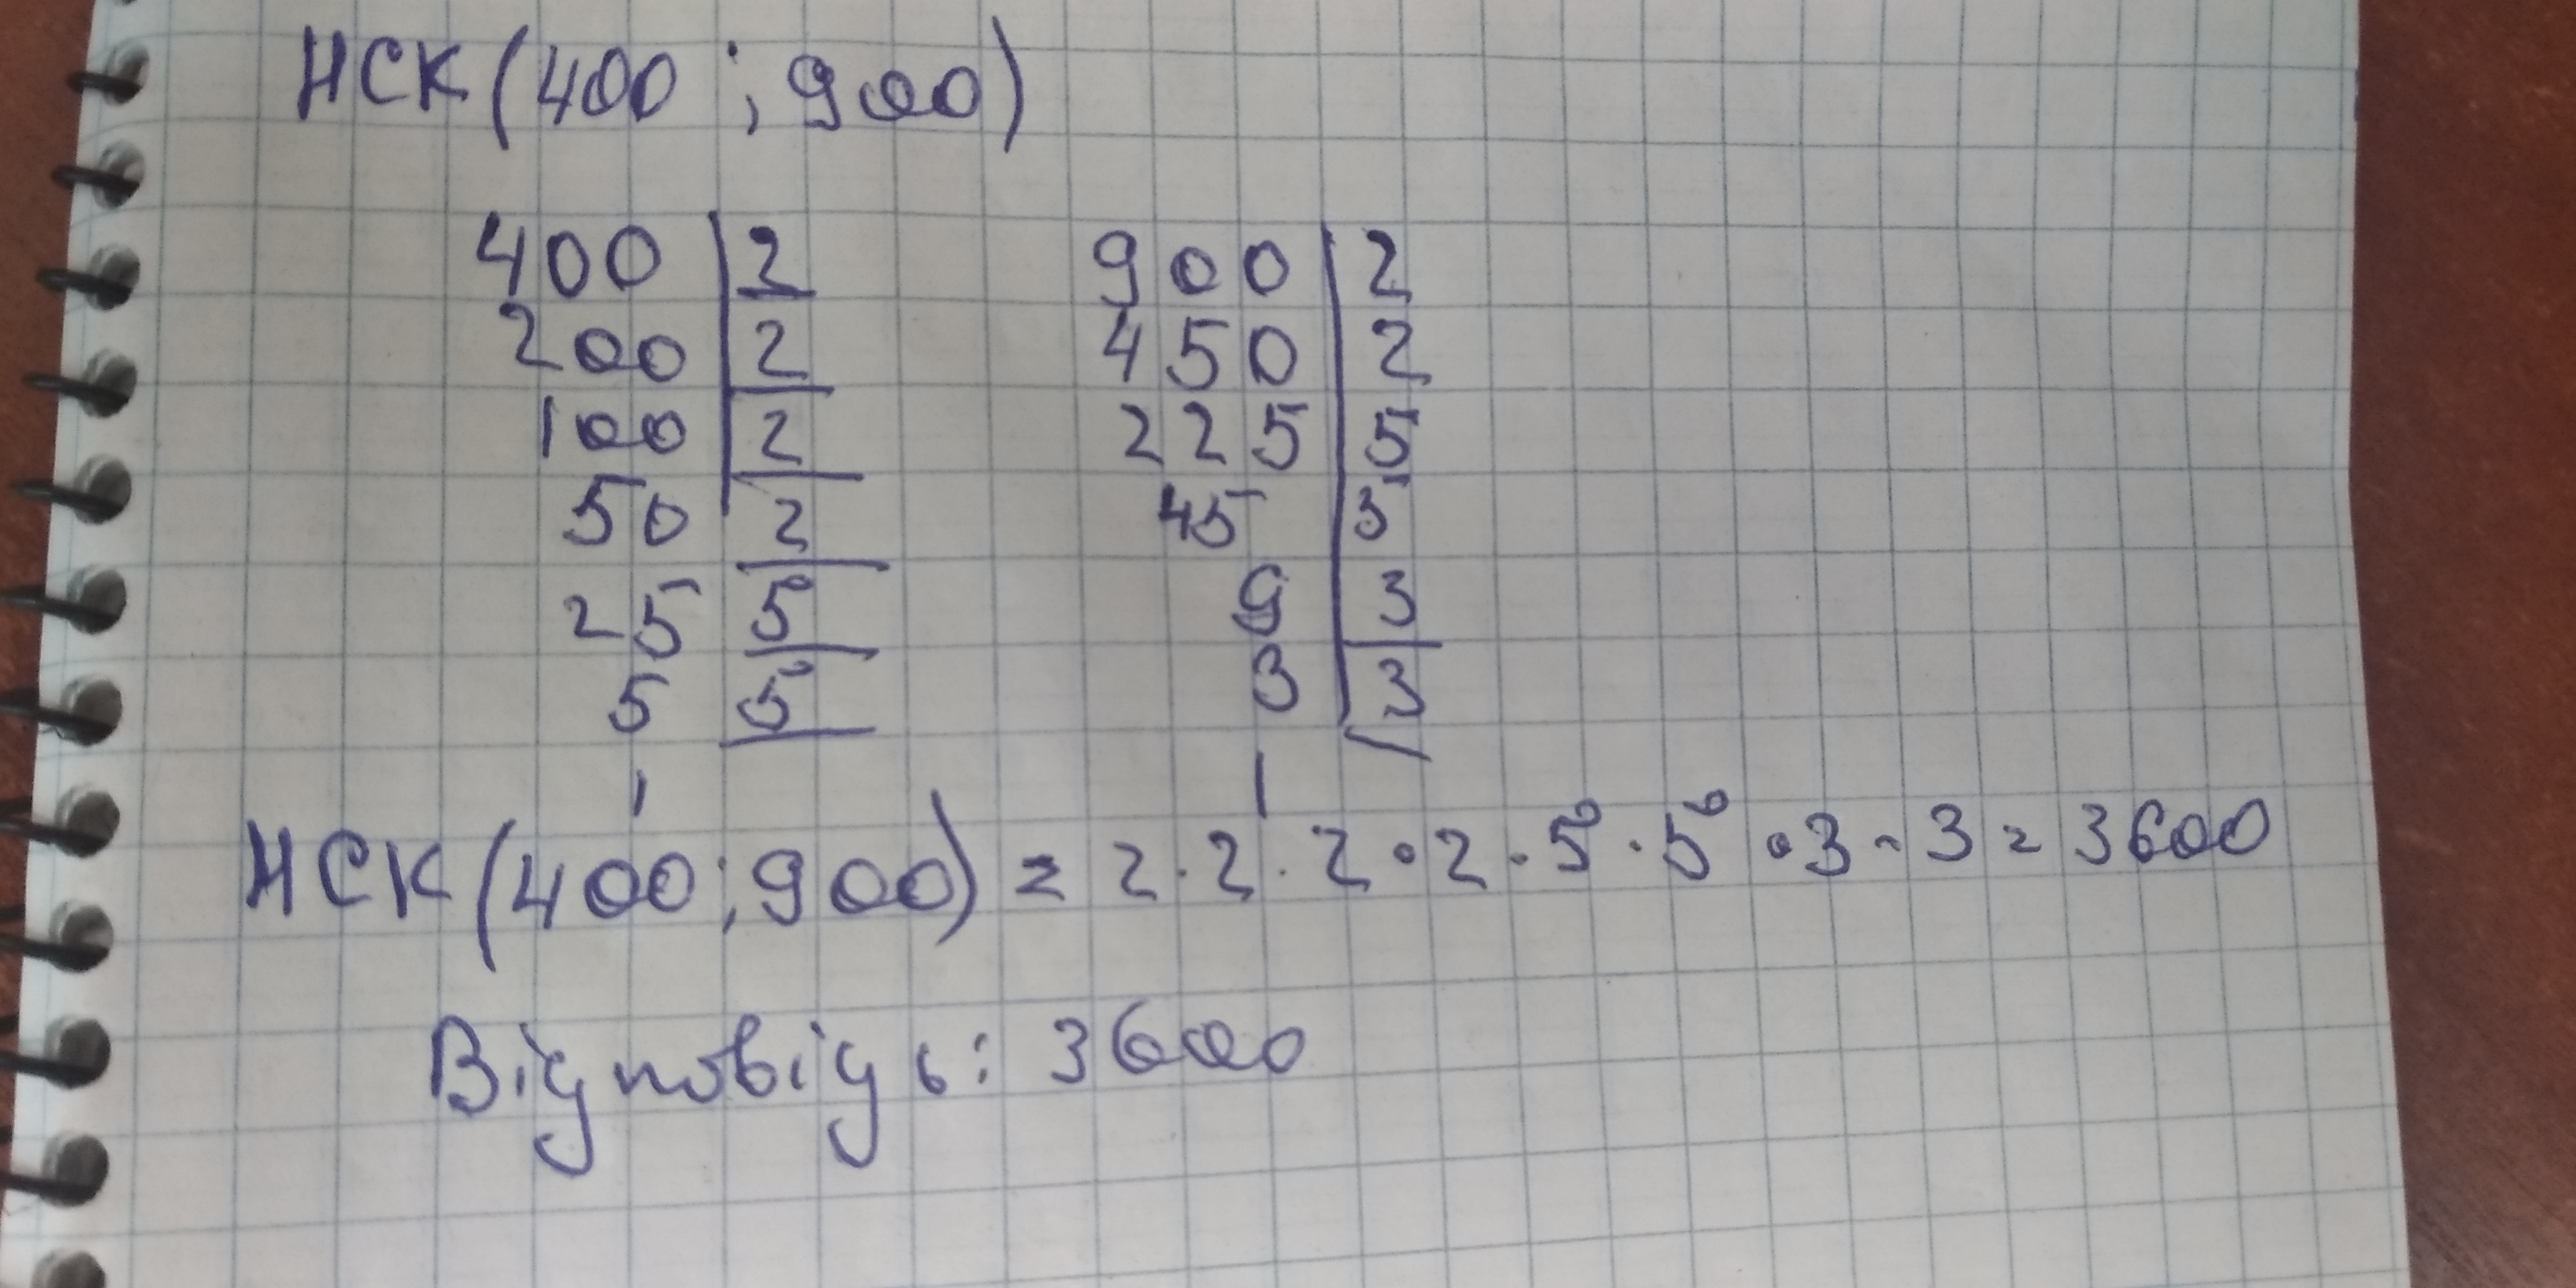 НСК(400 ; 900)
400 | 2 900 | 2
200 | 2 450 | 2
100 | 2 225 | 5
50 | 2 45 | 5
25 5 9 | 3
5 5 3 | 3
1 1
НСК(400;900) = 2·2·2·2·5·5·3·3 = 3600
Відповідь: 3600